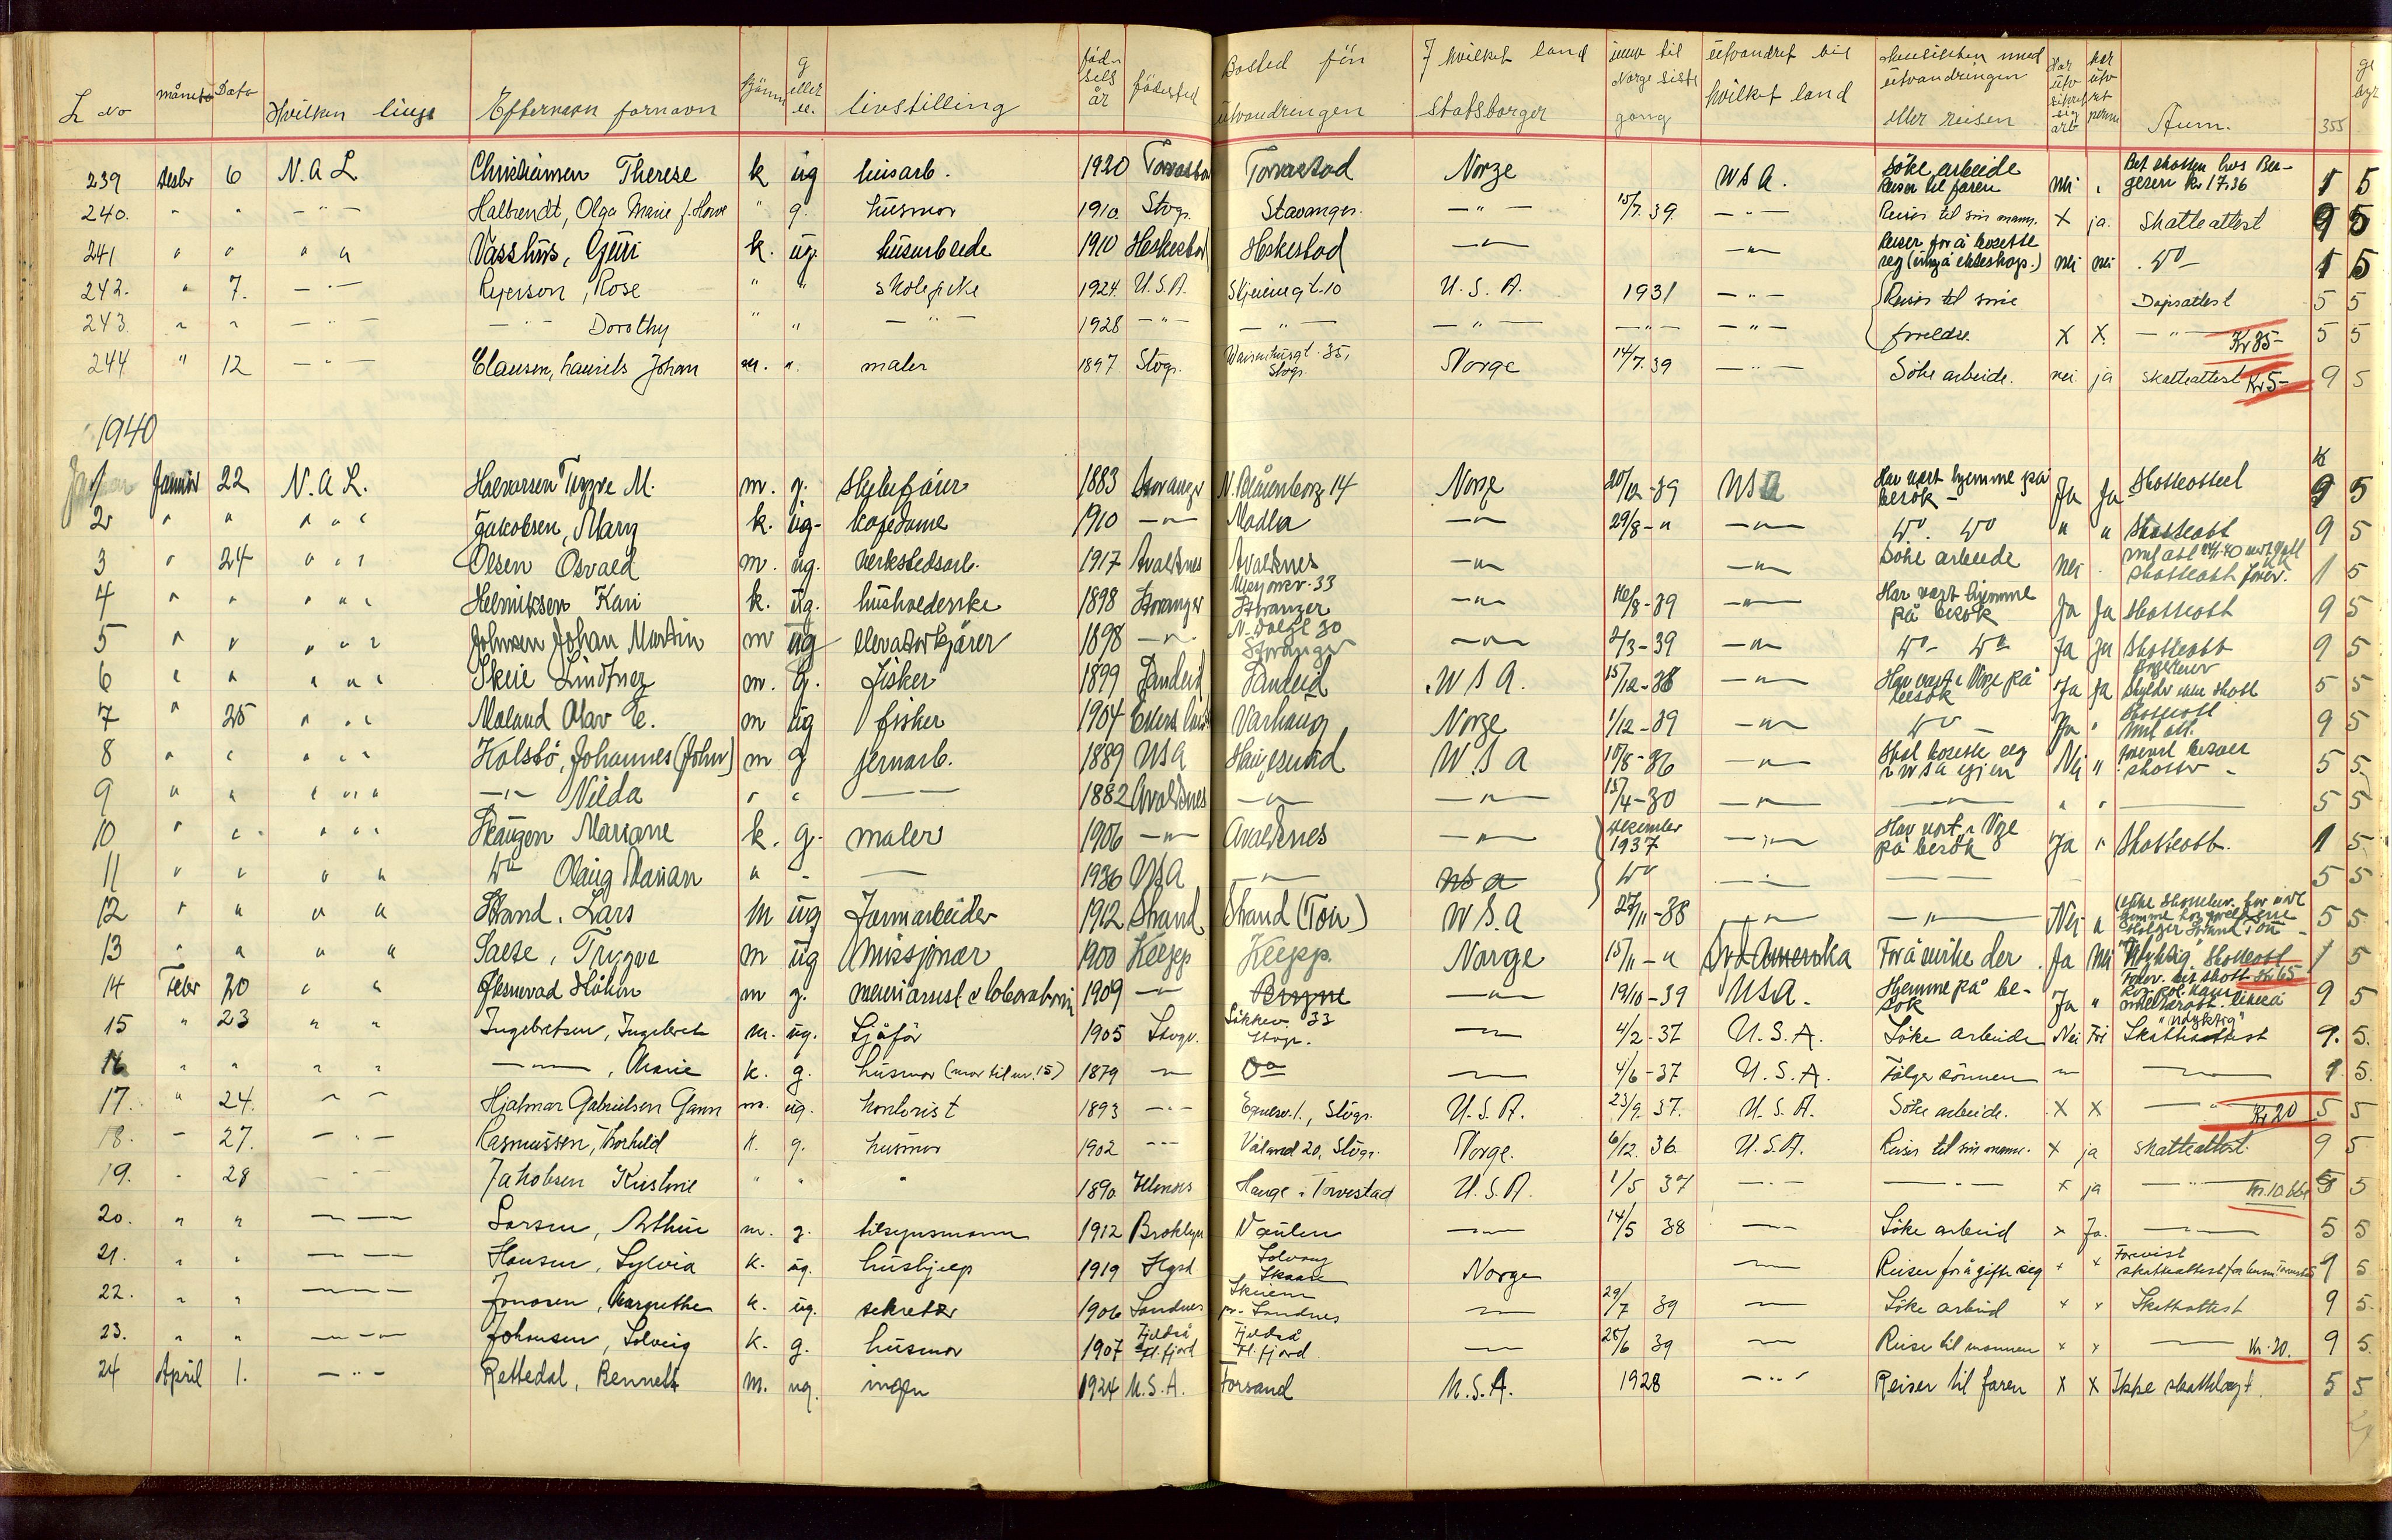 L No | måned | Dato | Hvilken linje | Efternavn fornavn | kjönn | g eller u. | livsstilling | föd-sels år | födested | Bosted för utvandringen | I hvilket land statsborger | innv til Norge siste gang | utvandret til hvilket land | Hensikten med utvandringen eller reisen | Har utv sikret seg arb | har utv ret perm | Anm. | 355
239 | desbr | 6 | N.A.L | Christiansen Therese | k | ug | husarb. | 1920 | Torvastad | Torvastad | Norge | | USA. | Söke arbeide Reiser til faren | nei | | Bet skatten hos Ber-gesen kr 17.36 | 1 | 5
240. | " | " | - " - | Halbrendt, Olga Marie f. | " | g. | husmor | 1910 | Stvgr. | Stavanger. | - " - | 15/7. 39 | - " - | Reiser til sin mann. | x | ja. | Skatteattest | 9 | 5
241 | " | " | " " | Vasshus, Guri | k. | ug. | husarbeide | 1910 | Heskestad | Heskestad | - " - | | - " - | Reiser for å bosette seg (inngå ekteskap.) | nei | nei | do | 1 | 5
242. | " | 7. | - " - | Ryerson, Rose | " | " | skolepike | 1924. | U.S.A. | Skjeningt. 10 | U.S.A. | 1931 | - " - | Reiser til sine | | | Dåpsattest | 5 | 5
243. | " | " | - " - | - " - Dorothy | " | " | - " - | 1928 | - " - | - " - | - " - | - " - | - " - | foreldre. | x | x. | - " - Kr 35- | 5 | 5
244 | " | 12 | - " - | Clausen, Laurits Johan | m. | ". | maler | 1897 | Stvgr. | Waisenhusgt. 35, Stvgr. | Norge | 14/7. 39 | - " - | Söke arbeide. | nei | ja | skatteattest Kr 5- | 9 | 5
1940
1 | Januar | 22 | N.A.L. | Halvorsen Trygve M. | m. | g. | skibsförer | 1883 | Stavanger | N. Blåsenborg 14 | Norge | 20/12-39 | USA | Har vært hjemme på besök - | Ja | Ja | Skatteattest | 9 | 5
2 | " | " | " " " | Jakobsen, Mary | k. | ug- | kafedame | 1910 | - " - | Madla | - " - | 29/8 - " | - " - | do do | " | " | Skatteatt | 9 | 5
3 | " | 24 | " " " | Olsen Osvald | m. | ug. | verkstedsarb. | 1917 | Avaldsnes | Avaldsnes | - " - | | - " - | Söke arbeide | Nei | . | skatteatt forev. | 1 | 5
4 | " | " | " " " | Helmiksen Kari | k. | ug. | hushoderske | 1898 | Stavanger | 33 Stavanger | - " - | 16/8-39 | - " - | Har vært hjemme på besök | Ja | Ja | Skatteatt | 9 | 5
5 | " | " | " " " | Johnsen Johan Martin | m | ug | elevatorkjörer | 1898 | - " - | 30 Stavanger | - " - | 2/3-39 | - " - | do do | Ja | Ja | Skatteatt | 9 | 5
6 | " | " | " " " | Skeie Lindtner | m. | g. | fisker | 1899 | Sandeid | Sandeid | USA. | 15/12-38 | - " - | Har vært i Norge på besök | Ja | Ja | skylder skatt | 5 | 5
7 | " | 25 | " " " | Maland Olav E. | m | ug | fisker | 1904 | | Varhaug | Norge | 1/12-39 | - " - | do - | Ja | " | Skatteatt | 9 | 5
8 | " | " | " " " | Kolstö, Johannes (John) | m | g | jernarb. | 1889 | USA | Haugesund | USA | 10/8-36 | - " - | Skal bosette seg i USA igjen | Nei | " | skatte - | 5 | 5.
9 | " | " | " " " | - " - Nilda | " | " | — | 1882 | Avaldsnes | - " - | - " - | 15/4-30 | - " - | - " - | " | " | — | 5 | 5
10 | " | " | " " " | Skaugen Marione | k. | g. | malers | 1906 | - " - | Avaldsnes | - " - | desember 1937 | - " - | Har vært i Norge på besök | Ja | " | Skatteatt. | 1 | 5
11 | " | " | " " | do Olaug Marian | " | - | — | 1936 | USA | - " - | USA | do | - " - | — | — | | | 5 | 5
12 | " | " | " " | Strand. Lars | m | ug | farmarbeider | 1912 | Strand | Strand (Tau) | USA | 27/11-38 | - " - | - " - | Nei | " | Holger Strand Tau - | 5 | 5
13 | " | " | " " | Salte, Trygve | m | ug | Misssjonær | 1900 | Klepp | Klepp. | Norge | 15/11 - " | Syd Amerika | For å virke der | Ja | Nei | "Udyktig" Skatteatt | 1 | 5
14 | Febr | 20 | " " | Håkon | m | g. | | 1909 | - " - | Bryne | - " - | 19/10-39 | USA. | Hjemme på be-sök | Ja | " | "Udyktig" | 9 | 5
15 | " | 23 | " " | Ingebretsen, Ingebret | m. | ug. | Sjåför | 1905 | Stvgr. | 33 Stvgr. | - " - | 4/2-37 | U.S.A. | Söke arbeide | Nei | | Skatteattest | 9. | 5.
16 | " | " | " " | - " - , Marie | k. | g. | husmor (mor til nr. 15) | 1879 | - " - | Do | - " - | 4/6-37 | U.S.A. | Fölge sönnen | - " - | | - " - | 9. | 5.
17. | " | 24. | " - | Hjalmar Gabrielsen Gann | m. | ug. | kontorist | 1893 | - " - | Egnesv. 1., Stvgr. | U.S.A. | 23/9. 37. | U.S.A. | Söke arbeide. | X | X | - " - Kr 20 | 5 | 5
18. | - | 27. | - " - | Rasmussen, Torhild | k. | g. | husmor | 1902 | - " - | Våland 20, Stvgr. | Norge. | 6/12. 36. | U.S.A. | Reiser til sin mann. | x | ja | skatteattest. | 9 | 5
19. | - | 28 | | Jakobsen Kristine | " | " | " | 1890 | Illinois | Hauge i Torvestad | U.S.A. | 1/5 37 | - " - | - " - | x | ja | - " - kr. 10.66 | 5 | 5
20. | " | " | - " - | Larsen, Arthur | m. | g. | tilsynsmann | 1912 | Broklyn | Vaulen | - " - | 14/5 38 | - " - | Söke arbeid | x | Ja. | - " - | 5 | 5
21. | " | " | - " - | Hansen, Sylvia | k. | ug. | hushjelp | 1919 | Hgsd | Solvang Skaare | Norge | | - " - | Reiser for å gifte seg | x | x | Forevist skatteattest | 9 | 5
22. | " | " | - " - | Jonasen, Margrethe | k. | ug. | sekretær | 1906 | Sandnes | Skeiene pr. Sandnes | - " - | 29/7 39 | - " - | Söke arbeid | x | x | Skatteattest | 9 | 5.
23. | " | " | - " - | Johansen, Solveig | k. | g. | husmor | 1907 | Fjeldså Hl. fjord | Fjeldså Hl. fjord | - " - | 28/6 39 | - " - | Reise til mannen | x | x | - " - kr. 20. | 9 | 5.
24 | April | 1. | - " - | Rettedal, Bennett | m. | ug. | ingen | 1924 | U.S.A. | Forsand | U.S.A. | 1928 | - " - | Reiser til faren | X | X | Ikke skattelagt. | 5 | 5